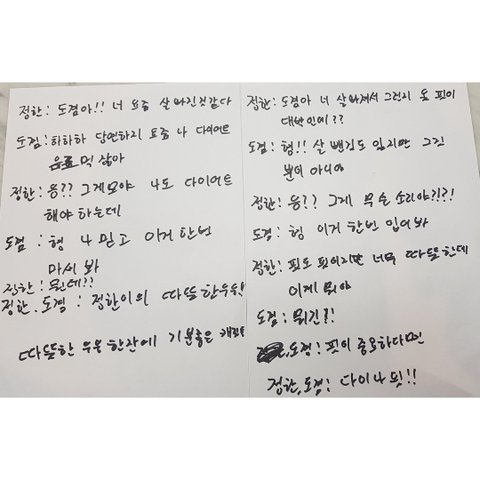 정한: 도겸아!! 너 요즘 살 빠진것같다
도겸: 하하하 당연하지 요즘 나 다이어트
음료 먹잖아
정한: 응?? 그게모야 나도 다이어트
해야 하는데
도겸: 형 나 믿고 이거 한번
마셔 봐
정한: 뭔데??
정한, 도겸: 정한이의 따뜻한우유!
따뜻한 우유 한잔에 기분좋은
정한: 도겸아 너 살 빠져서 그런지 옷 핏이
대박인데??
도겸: 형!! 살 뺀김도 있지만 그건
뿐이 아니야
정한: 응?? 그게 무슨 소리야?!?!
도겸: 형 이거 한번 입어봐
정한: 핏도 핏이지만 너무 따뜻한데
이게 뭐야
도겸: 뭐긴?!
도겸: 핏이 중요하다면
정한, 도겸: 다이나핏!!